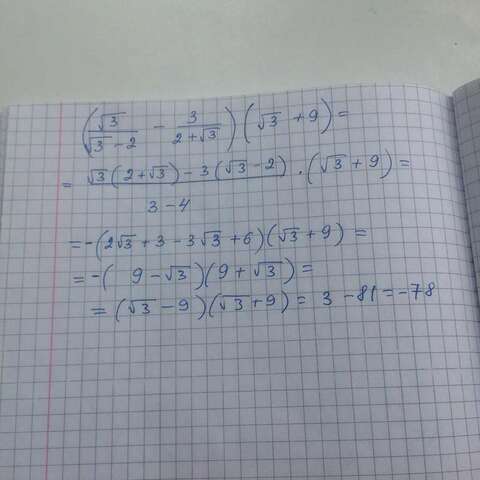 (√3/(√3-2) - 3/(2+√3))(√3+9)=
= (√3(2+√3)-3(√3-2))/(3-4) · (√3+9)=
=-(2√3+3-3√3+6)(√3+9)=
=-( 9-√3)(9+√3)=
=(√3-9)(√3+9)= 3-81=-78